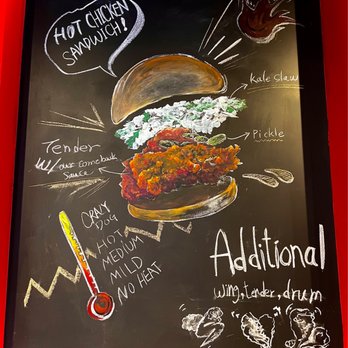 HOT CHICKEN
SANDWICH!
Kale Slaw
Pickle
Tender
w/our comeback
Sauce
CRAZY
DOG
HOT
MEDIUM
MILD
NO HEAT
Additional
wing, tender, drum